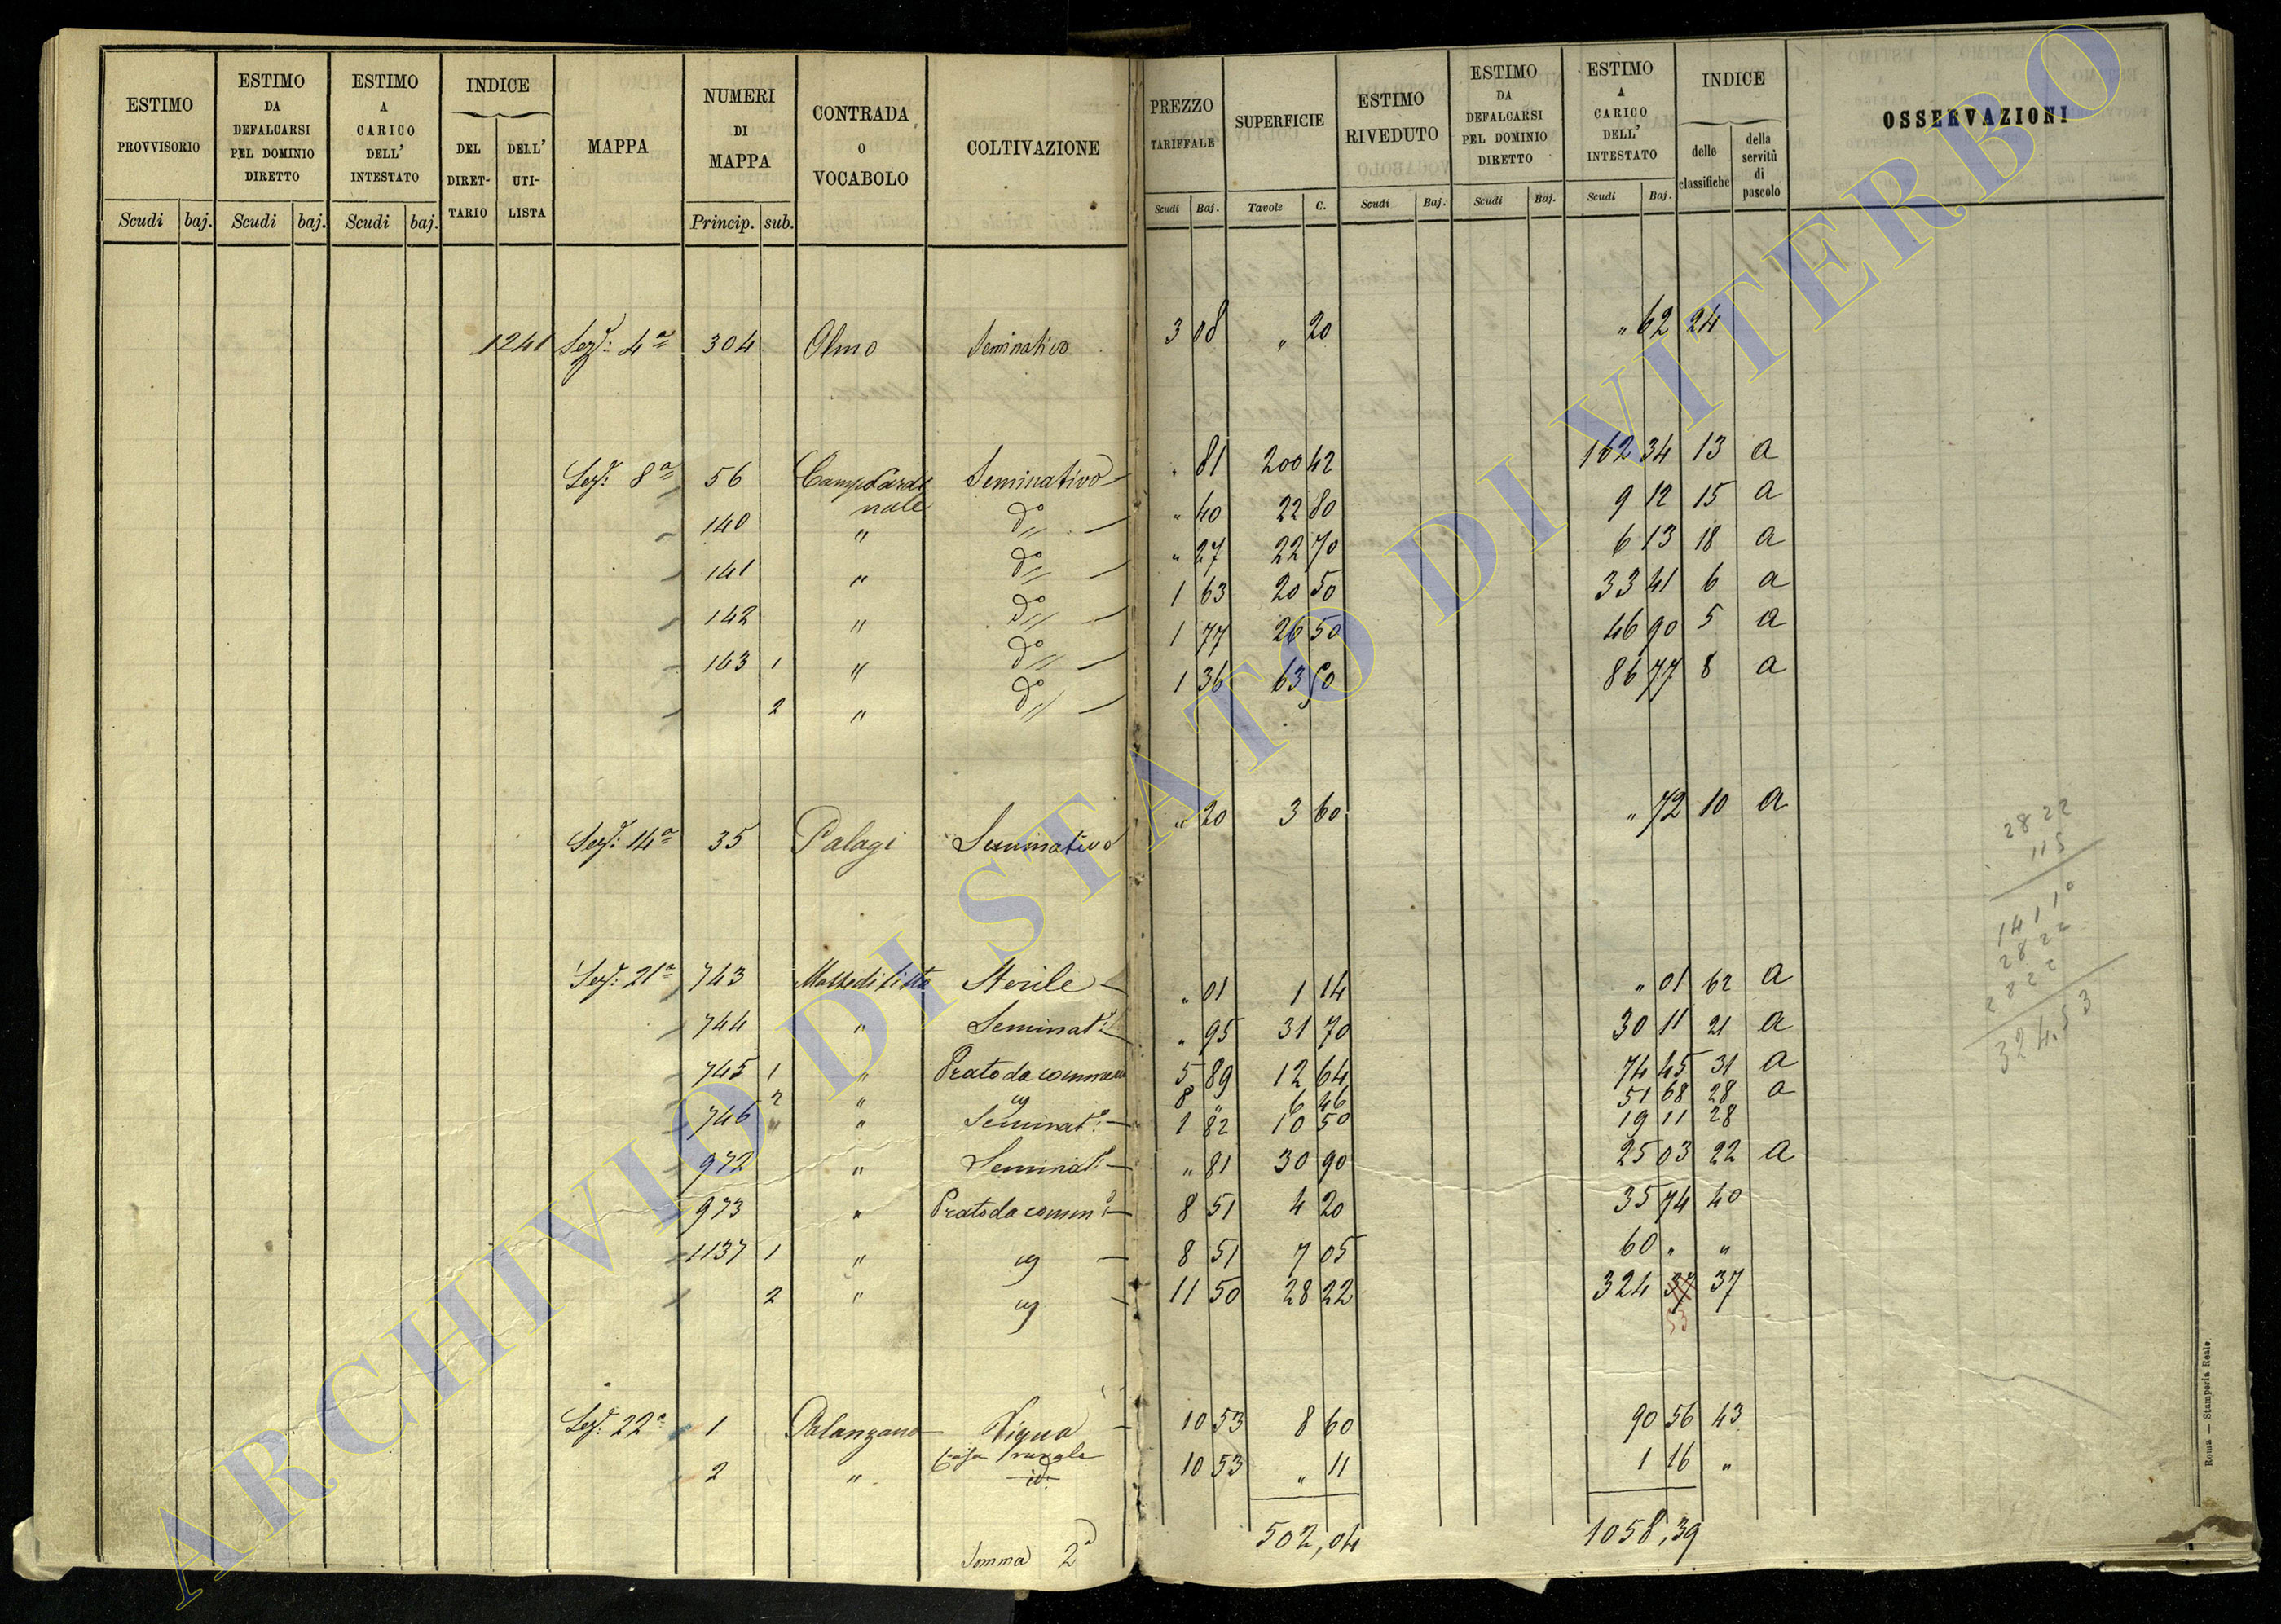 ESTIMO PROVVISORIO
ESTIMO DA DEFALCARSI PEL DOMINIO DIRETTO
ESTIMO A CARICO DELL' INTESTATO
INDICE
DEL DIRET-TARIO
DELL' UTI-LISTA
MAPPA
NUMERI DI MAPPA
CONTRADA O VOCABOLO
COLTIVAZIONE
PREZZO TARIFFALE
SUPERFICIE
ESTIMO RIVEDUTO
ESTIMO DA DEFALCARSI PEL DOMINIO DIRETTO
ESTIMO A CARICO DELL' INTESTATO
INDICE
delle classifiche
della servitù di pascolo
OSSERVAZIONI
Scudi baj. Scudi baj. Scudi baj. Princip. sub. Scudi Baj. Tavole C. Scudi Baj. Scudi Baj. Scudi Baj.
1241 Sez.e 4a 304 Olmo Seminativo 3 08 " 20 " 62 24
Sez.e 8a 56 Campo Cardinale Seminativo " 81 200 42 162 34 13 a
140 " do " 40 22 80 9 12 15 a
141 " do " 27 22 70 6 13 18 a
142 " do 1 63 20 50 33 41 6 a
143 1 " do 1 77 26 50 46 90 5 a
2 " do 1 36 63 80 86 77 8 a
Sez.e 14a 35 Palagi Seminativo " 20 3 60 " 72 10 a
Sez.e 21a 743 Sterile " 01 1 14 " 01 62 a
744 " Seminat.o " 95 31 70 30 11 21 a
745 1 " Prato da comune 5 89 12 64 74 45 31 a
2 " 8 " 6 46 51 68 28 a
746 " " Seminat.o 1 82 10 50 19 11 28
972 " Seminat.o " 81 30 90 25 03 22 a
973 " Prato da comun.e 8 51 4 20 35 74 40
1137 1 " 8 51 7 05 60 " "
2 " 11 50 28 22 324 37 37
53
Sez.e 22a 1 Palanzano Vigna 10 53 8 60 90 56 43
2 " Casa rurale 10 53 " 11 1 16 "
id.
Somma 2a 502,04 1058,39
2822
115
14110
2822
2822
324.53
Roma — Stamperia Reale.
ARCHIVIO DI STATO DI VITERBO